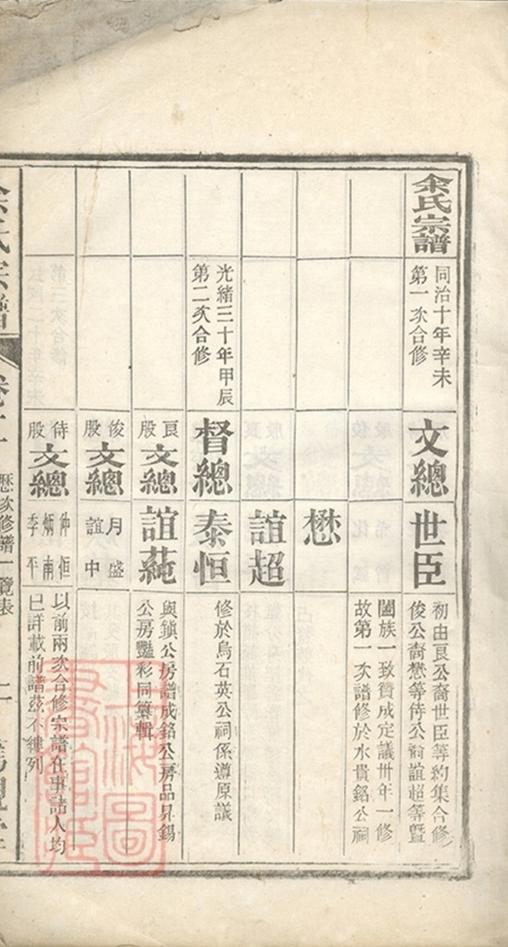 余氏宗譜
同治十年辛未
第一次合修
文總
世臣
初由良公裔世臣等約集合修
俊公裔懋等待公裔誼超等暨
闔族一致贊成定議卅年一修
故第一次譜修於水貴銘公祠
懋
誼超
光緒三十年甲辰
第二次合修
督總
泰恒
修於烏石英公祠係遵原議
良股
文總
誼蒓
與鎮公房譜成銘公房品昇錫
公房豔彩同纂輯
俊股
文總
月盛
誼中
待股
文總
仲恒
炳南
季平
以前兩次合修宗譜在事諸人均
已詳載前譜茲不繹列
余氏宗譜
歷次修譜一覽表
上海圖書館藏